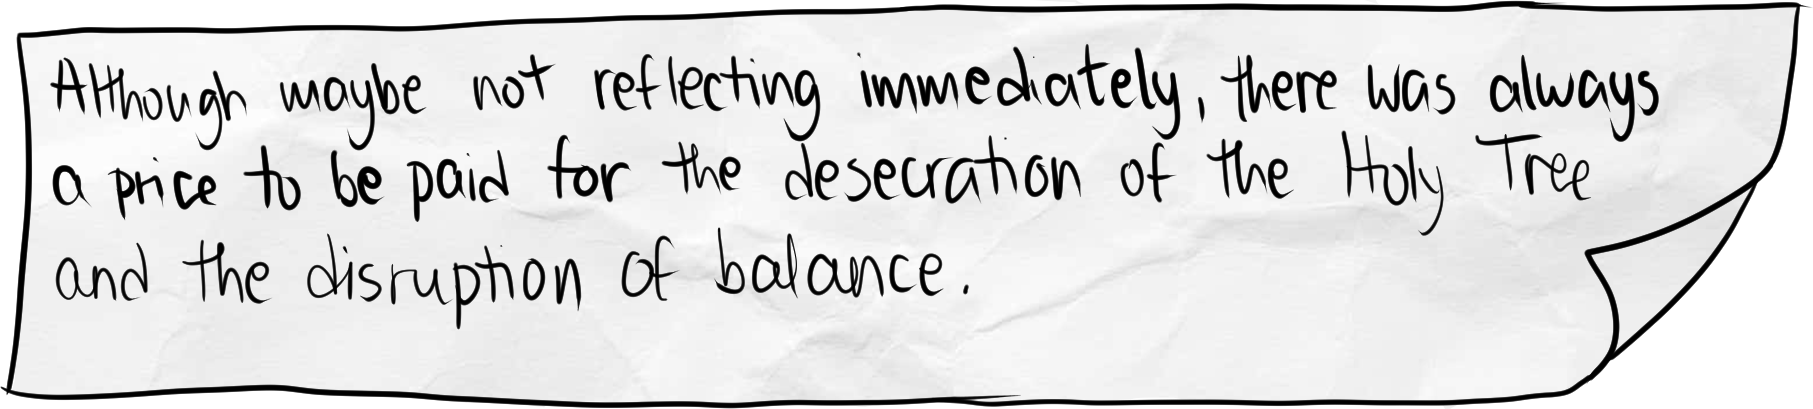 Although maybe not reflecting immediately, there was always
a price to be paid for the desecration of the Holy Tree
and the disruption of balance.